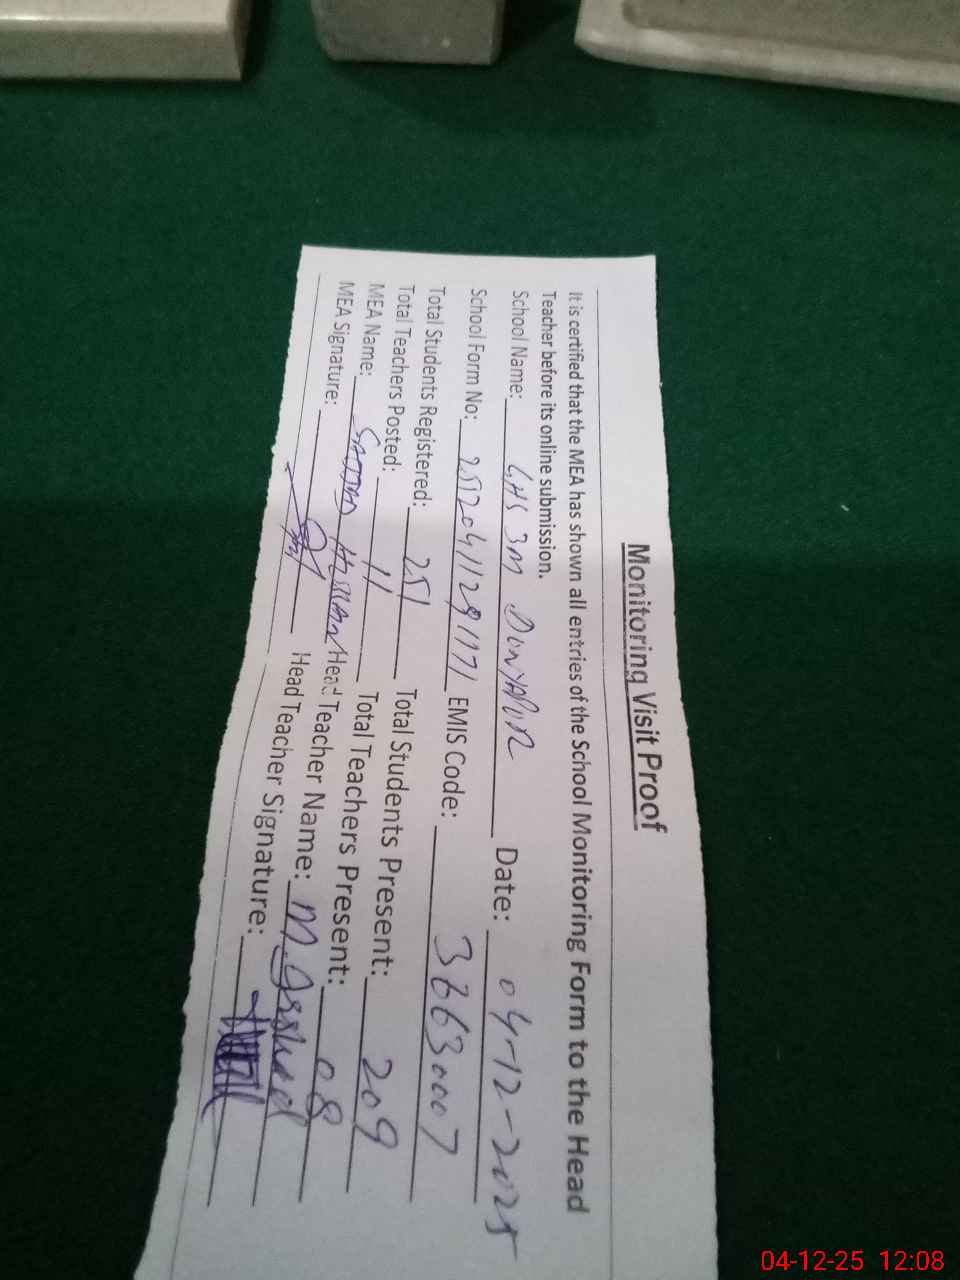 Monitoring Visit Proof
It is certified that the MEA has shown all entries of the School Monitoring Form to the Head
Teacher before its online submission.
School Name: GHS 3M DUNYAPUR Date: 04-12-2025
School Form No: 25120411291171 EMIS Code: 36630007
Total Students Registered: 251 Total Students Present: 209
Total Teachers Posted: 11 Total Teachers Present: 08
MEA Name: SAJJAD HUSSAIN Head Teacher Name: M. Arshad
MEA Signature: Head Teacher Signature:
04-12-25 12:08